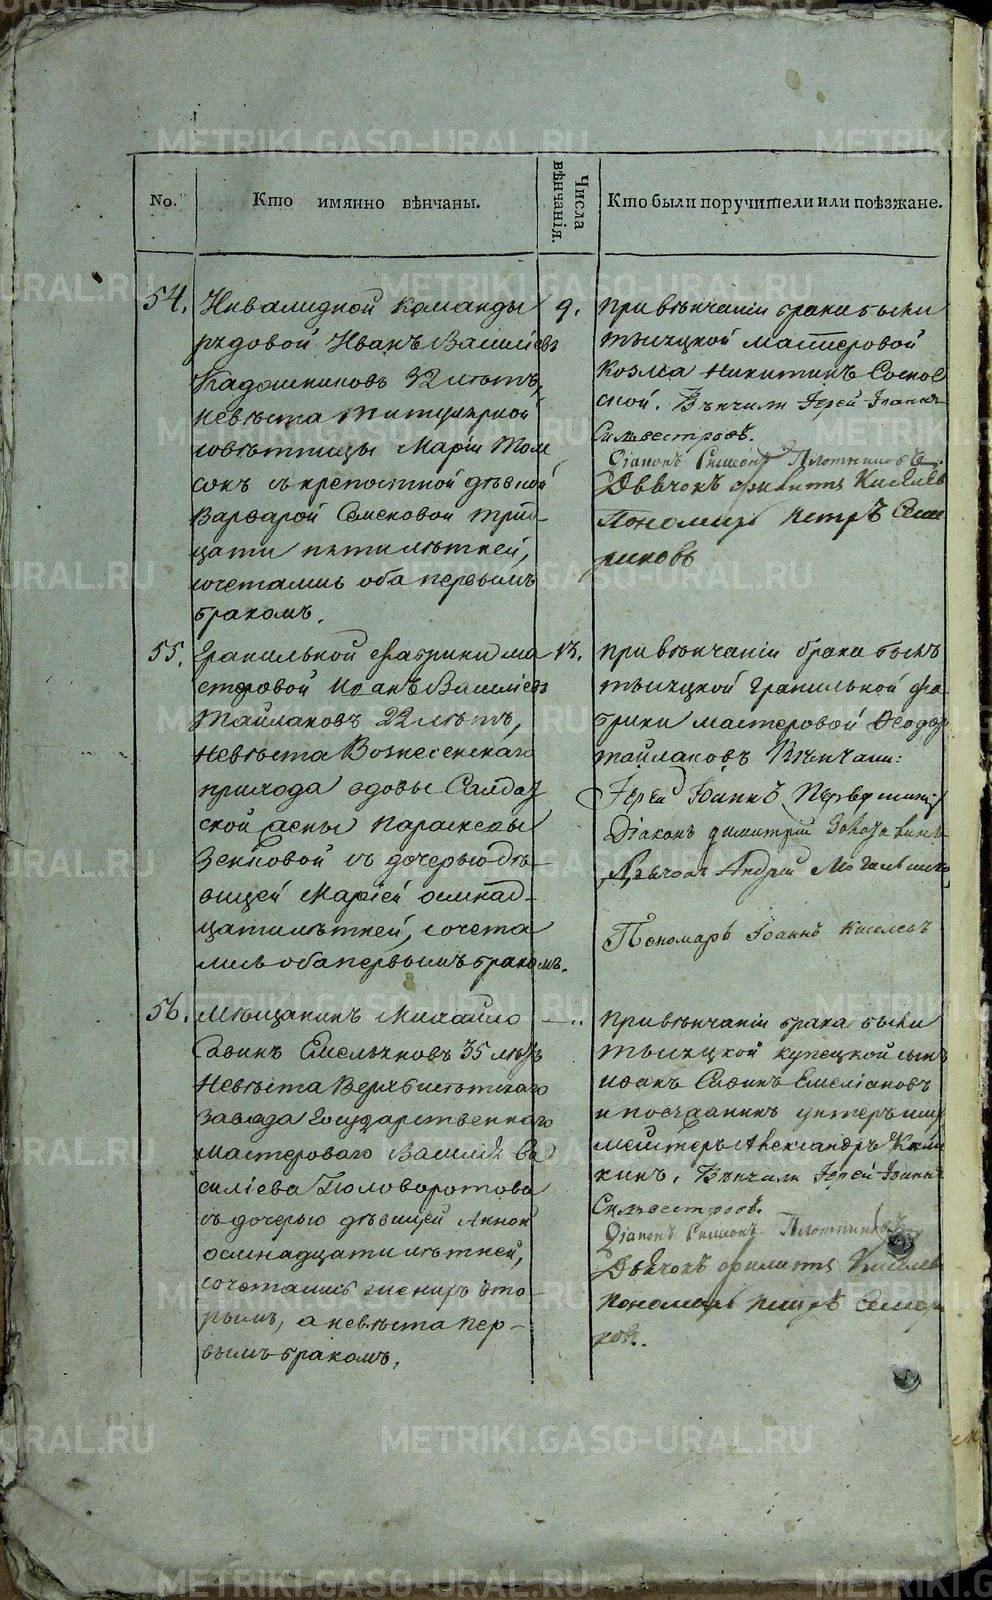 METRIKI.GASO-URAL.RU
No.
Кто имянно вѣнчаны.
Числа вѣнчанія.
Кто были поручители или поѣзжане.
54.
Инвалидной команды
рядовой Иванъ Василіевъ
32 лѣтъ,
невѣста титулярной
совѣтницы Маріи Том
сонъ съ крепостной дѣвкой
Варварой Семеновой трид-
цати пяти лѣтней,
сочетались оба первымъ
бракомъ.
9.
При вѣнчаніи брака были
мастеровой
Козма Никитинъ Соснов
ской. Вѣнчали Іерей Іоаннъ
Сильвестровъ.
Діаконъ Симеонъ Плотниковъ
Дьячокъ Филиппъ Киселевъ
Пономарь Петръ
55.
Гранильной фабрики ма
стеровой Иванъ Василіевъ
Тайлаковъ 22 лѣтъ,
невѣста Вознесенскаго
прихода вдовы Салдат
ской жены Параскевы
Зенковой съ дочерью дѣ-
вицей Маріей осмнад-
цатилѣтней, сочета
лись оба первымъ бракомъ.
13.
При вѣнчаніи брака былъ
гранильной фа
брики мастеровой Ѳеодор
Тайлаковъ Вѣнчали:
Іерей Іоаннъ
Діаконъ Димитрій
Дьячокъ Андрей
Пономарь Іоаннъ Киселевъ
56.
Мѣщанинъ Михайло
Савинъ Емельяновъ 35 лѣтъ
Невѣста Верхъ Исетскаго
Завода Государственнаго
мастероваго Василія Ва
силіева Половоротова
съ дочерью дѣвицей Анной
осмнадцати лѣтней,
сочетались женихъ вто-
рымъ, а невѣста пер-
вымъ бракомъ.
— "
При вѣнчаніи брака были
купецкой сынъ
Иванъ Савинъ Емеліановъ
и посадникъ унтеръ ших
мейстеръ Александръ
кинъ. Вѣнчали Іерей Іоаннъ
Сильвестровъ.
Діаконъ Симеонъ Плотниковъ
Дьячокъ Филиппъ Киселевъ
Пономарь Петръ